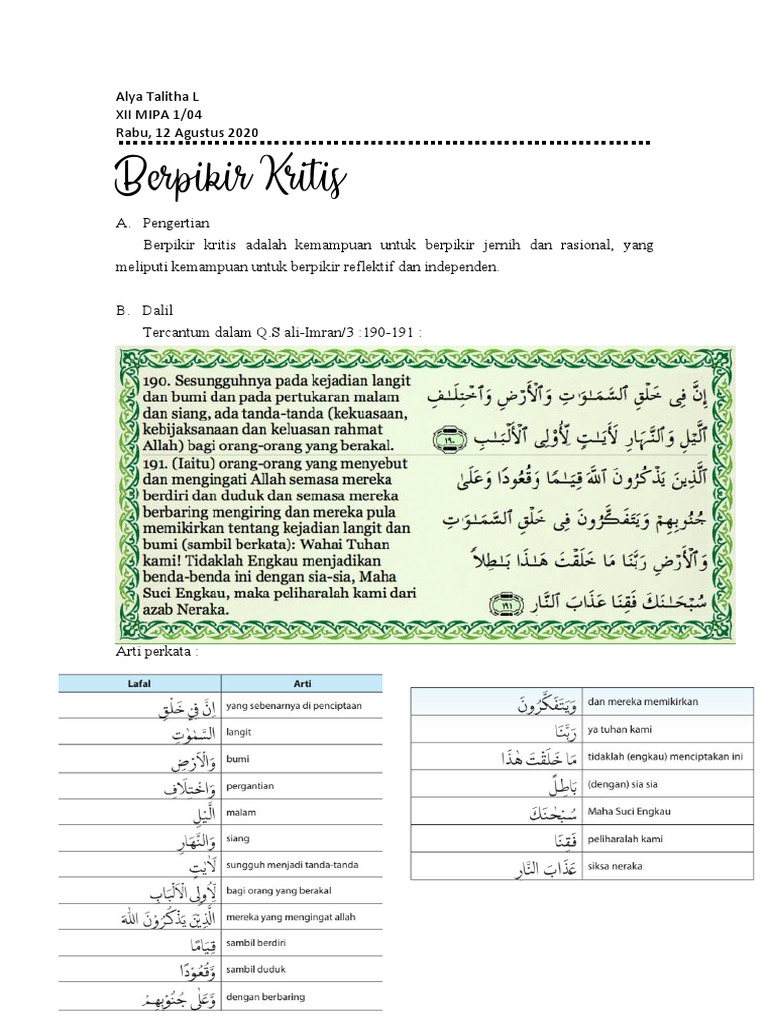 Alya Talitha L
XII MIPA 1/04
Rabu, 12 Agustus 2020
Berpikir Kritis
A. Pengertian
Berpikir kritis adalah kemampuan untuk berpikir jernih dan rasional, yang
meliputi kemampuan untuk berpikir reflektif dan independen.
B. Dalil
Tercantum dalam Q.S ali-Imran/3 :190-191 :
190. Sesungguhnya pada kejadian langit
dan bumi dan pada pertukaran malam
dan siang, ada tanda-tanda (kekuasaan,
kebijaksanaan dan keluasan rahmat
Allah) bagi orang-orang yang berakal.
191. (Iaitu) orang-orang yang menyebut
dan mengingati Allah semasa mereka
berdiri dan duduk dan semasa mereka
berbaring mengiring dan mereka pula
memikirkan tentang kejadian langit dan
bumi (sambil berkata): Wahai Tuhan
kami! Tidaklah Engkau menjadikan
benda-benda ini dengan sia-sia, Maha
Suci Engkau, maka peliharalah kami dari
azab Neraka.
إِنَّ فِى خَلْقِ ٱلسَّمَـٰوَٰتِ وَٱلْأَرْضِ وَٱخْتِلَـٰفِ
ٱلَّيْلِ وَٱلنَّهَارِ لَـَٔايَـٰتٍ لِّأُو۟لِى ٱلْأَلْبَـٰبِ ١٩٠
ٱلَّذِينَ يَذْكُرُونَ ٱللَّهَ قِيَـٰمًا وَقُعُودًا وَعَلَىٰ
جُنُوبِهِمْ وَيَتَفَكَّرُونَ فِى خَلْقِ ٱلسَّمَـٰوَٰتِ
وَٱلْأَرْضِ رَبَّنَا مَا خَلَقْتَ هَـٰذَا بَـٰطِلًا
سُبْحَـٰنَكَ فَقِنَا عَذَابَ ٱلنَّارِ ١٩١
Arti perkata :
Lafal Arti
اِنَّ فِيْ خَلْقِ yang sebenarnya di penciptaan
السَّمٰوٰتِ langit
وَالْاَرْضِ bumi
وَاخْتِلَافِ pergantian
الَّيْلِ malam
وَالنَّهَارِ siang
لَاٰيٰتٍ sungguh menjadi tanda-tanda
لِّاُولِى الْاَلْبَابِ bagi orang yang berakal
الَّذِيْنَ يَذْكُرُوْنَ اللّٰهَ mereka yang mengingat allah
قِيَامًا sambil berdiri
وَّقُعُوْدًا sambil duduk
وَّعَلٰى جُنُوْبِهِمْ dengan berbaring
وَيَتَفَكَّرُوْنَ dan mereka memikirkan
رَبَّنَا ya tuhan kami
مَا خَلَقْتَ هٰذَا tidaklah (engkau) menciptakan ini
بَاطِلًا (dengan) sia sia
سُبْحٰنَكَ Maha Suci Engkau
فَقِنَا peliharalah kami
عَذَابَ النَّارِ siksa neraka